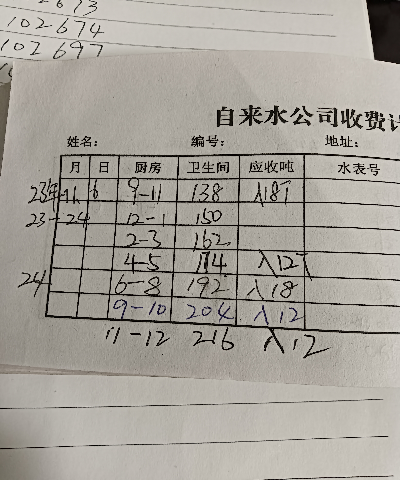 102674
102697
自来水公司收费
姓名： 编号： 地址：
月 日 厨房 卫生间 应收吨 水表号
23年 11 6 9-11 138 入18T
23-24 12-1 150
2-3 162
4-5 174 入12T
24 6-8 192 入18
9-10 204 入12
11-12 216 入12